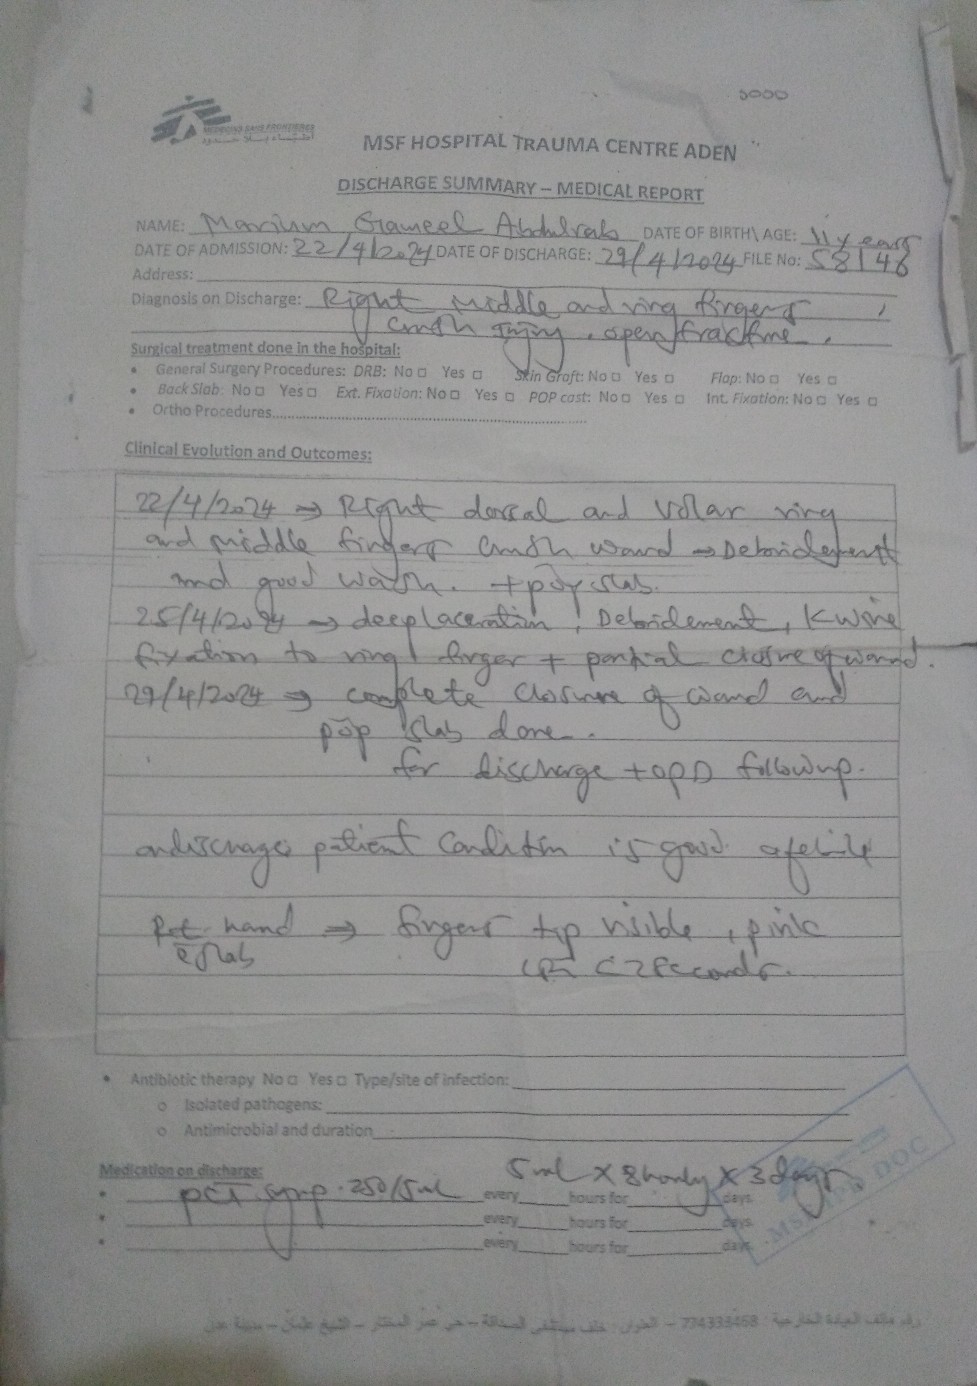 MEDECINS SANS FRONTIERES
أطباء بلا حدود
MSF HOSPITAL TRAUMA CENTRE ADEN
DISCHARGE SUMMARY – MEDICAL REPORT
NAME: Marium Gameel Abdulrab DATE OF BIRTH\ AGE: 11 years
DATE OF ADMISSION: 22/4/2024 DATE OF DISCHARGE: 29/4/2024 FILE No: 58146
Address:
Diagnosis on Discharge: Right middle and ring fingers
crush injury, open fracture.
Surgical treatment done in the hospital:
• General Surgery Procedures: DRB: No □ Yes □ Skin Graft: No □ Yes □ Flap: No □ Yes □
• Back Slab: No □ Yes □ Ext. Fixation: No □ Yes □ POP cast: No □ Yes □ Int. Fixation: No □ Yes □
• Ortho Procedures
Clinical Evolution and Outcomes:
22/4/2024 → Right dorsal and volar ring
and middle fingers crush wound → Debridement
and good wash. + pop slab.
25/4/2024 → deep laceration, Debridement, K wire
fixation to ring finger + partial closure of wound.
29/4/2024 → complete closure of wound and
pop slab done.
for discharge + OPD followup.
on discharge patient condition is good afebrile
hand → fingers tip visible, pink
slab < 2 seconds.
• Antibiotic therapy No □ Yes □ Type/site of infection:
o Isolated pathogens:
o Antimicrobial and duration
Medication on discharge:
• PCT syrup 250/5ml 5ml X 8 hourly X 3 days every hours for days
• every hours for days
• every hours for days
MSF DOC
رقم هاتف العيادة الخارجية: 774333468 – العنوان: خلف مستشفى الصداقة – حي عمر المختار – الشيخ عثمان – مدينة عدن